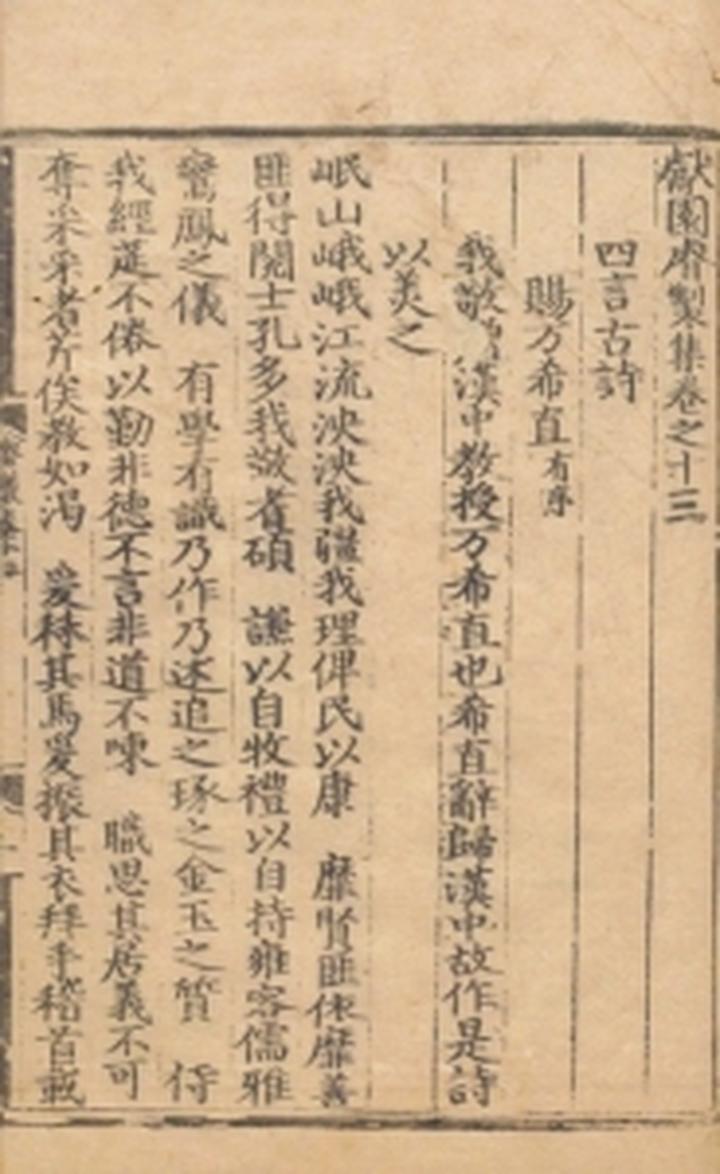 獻園睿製集卷之十三
四言古詩
賜方希直有序
我敬 漢中教授方希直也希直辭歸漢中故作是詩
以美之
岷山峨峨江流泱泱我疆我理俾民以康 靡賢匪依靡善
匪得閱士孔多我敬耆碩 謙以自牧禮以自持雍容儒雅
鸞鳳之儀 有學有識乃作乃述追之琢之金玉之質 侍
我經筵不倦以勤非德不言非道不陳 職思其居義不可
奪采采者芹俟教如渴 爰秣其馬爰振其衣拜手稽首載